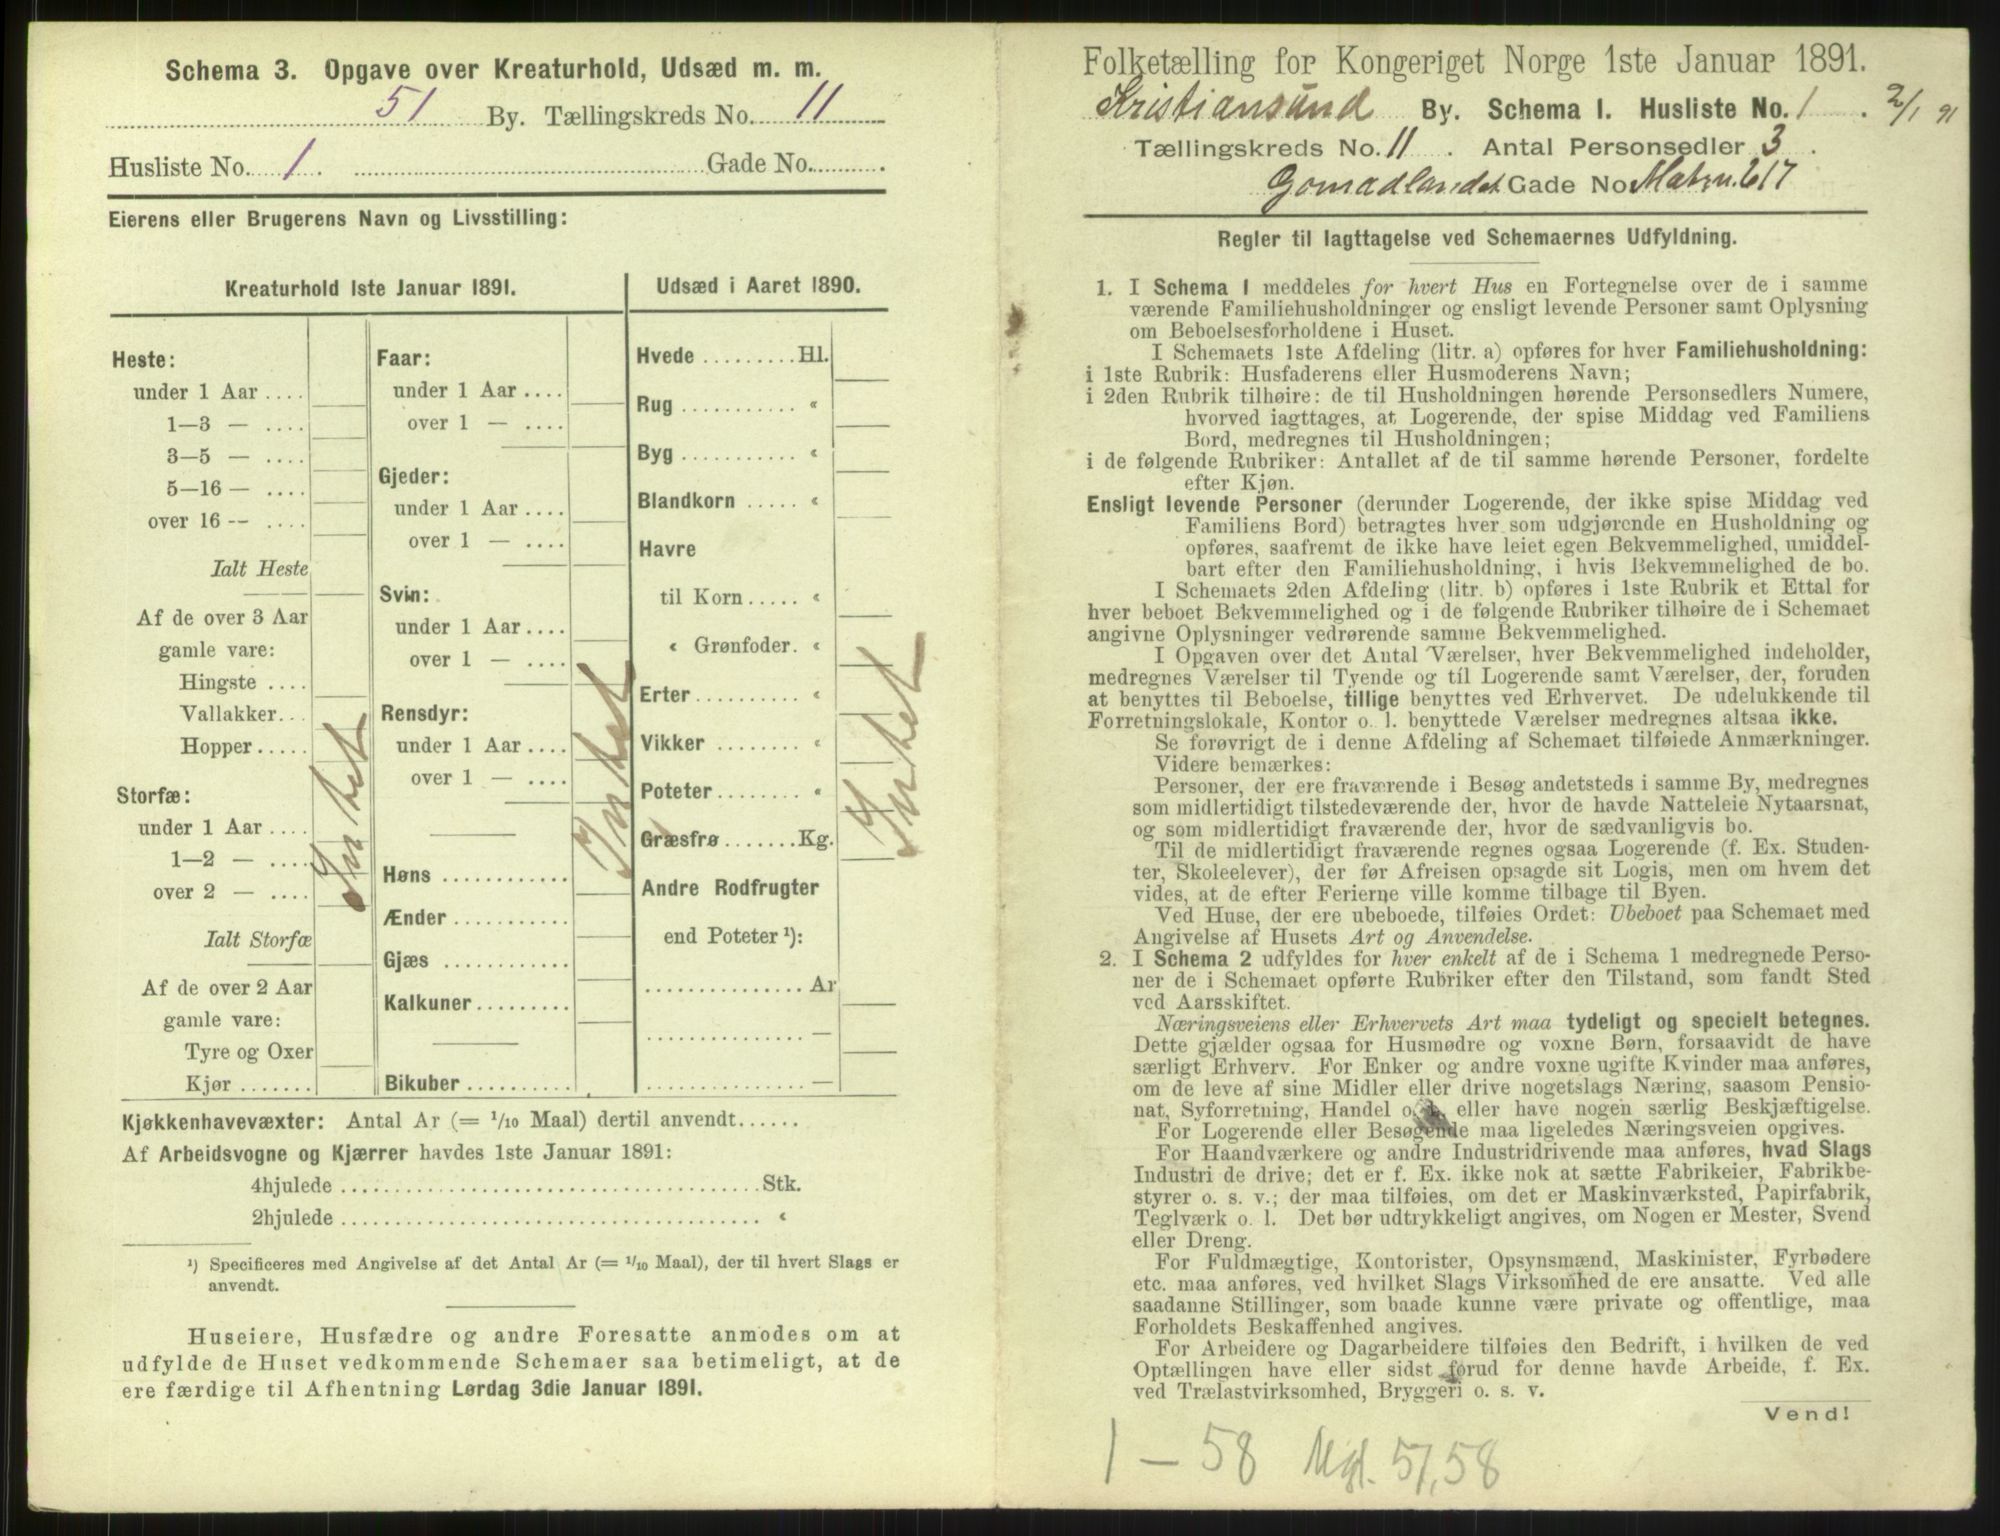 Schema 3. Opgave over Kreaturhold, Udsæd m. m.
51 By. Tællingskreds No. 11
Husliste No. 1. Gade No.
Eierens eller Brugerens Navn og Livsstilling:
Kreaturhold 1ste Januar 1891.
Heste:
under 1 Aar ....
1—3 — ....
3—5 — ....
5—16 — ....
over 16 -- ....
Ialt Heste
Af de over 3 Aar
gamle vare:
Hingste ....
Vallakker...
Hopper.....
Storfæ:
under 1 Aar ....
1—2 — ....
over 2 — ....
Ialt Storfæ
Af de over 2 Aar
gamle vare:
Tyre og Oxer
Kjør .......
Intet
Faar:
under 1 Aar ....
over 1 — ....
Gjeder:
under 1 Aar ....
over 1 — ....
Svin:
under 1 Aar ....
over 1 — ....
Rensdyr:
under 1 Aar ....
over 1 — ....
Høns ............
Ænder ...........
Gjæs ............
Kalkuner.........
Bikuber ..........
Intet
Udsæd i Aaret 1890.
Hvede .........Hl.
Rug ........... «
Byg ........... «
Blandkorn ..... «
Havre
til Korn..... «
« Grønfoder. «
Erter ......... «
Vikker ........ «
Poteter........ «
Græsfrø .......Kg.
Andre Rodfrugter
end Poteter ¹):
............... Ar
............... —
............... —
Intet
Kjøkkenhavevæxter: Antal Ar (= 1/10 Maal) dertil anvendt......
Af Arbeidsvogne og Kjærrer havdes 1ste Januar 1891:
4hjulede ......................................Stk.
2hjulede ...................................... «
¹) Specificeres med Angivelse af det Antal Ar (= 1/10 Maal), der til hvert Slags er
anvendt.
Huseiere, Husfædre og andre Foresatte anmodes om at
udfylde de Huset vedkommende Schemaer saa betimeligt, at de
ere færdige til Afhentning Lørdag 3die Januar 1891.
Folketælling for Kongeriget Norge 1ste Januar 1891.
Kristiansund By. Schema I. Husliste No. 1. 2/1 91
Tællingskreds No. 11. Antal Personsedler 3.
Gomadlandet Gade No Matr.n. 617
Regler til Iagttagelse ved Schemaernes Udfyldning.
1. I Schema 1 meddeles for hvert Hus en Fortegnelse over de i samme
værende Familiehusholdninger og ensligt levende Personer samt Oplysning
om Beboelsesforholdene i Huset.
I Schemaets 1ste Afdeling (litr. a) opføres for hver Familiehusholdning:
i 1ste Rubrik: Husfaderens eller Husmoderens Navn;
i 2den Rubrik tilhøire: de til Husholdningen hørende Personsedlers Numere,
hvorved iagttages, at Logerende, der spise Middag ved Familiens
Bord, medregnes til Husholdningen;
i de følgende Rubriker: Antallet af de til samme hørende Personer, fordelte
efter Kjøn.
Ensligt levende Personer (derunder Logerende, der ikke spise Middag ved
Familiens Bord) betragtes hver som udgjørende en Husholdning og
opføres, saafremt de ikke have leiet egen Bekvemmelighed, umiddel-
bart efter den Familiehusholdning, i hvis Bekvemmelighed de bo.
I Schemaets 2den Afdeling (litr. b) opføres i 1ste Rubrik et Ettal for
hver beboet Bekvemmelighed og i de følgende Rubriker tilhøire de i Schemaet
angivne Oplysninger vedrørende samme Bekvemmelighed.
I Opgaven over det Antal Værelser, hver Bekvemmelighed indeholder,
medregnes Værelser til Tyende og til Logerende samt Værelser, der, foruden
at benyttes til Beboelse, tillige benyttes ved Erhvervet. De udelukkende til
Forretningslokale, Kontor o. l. benyttede Værelser medregnes altsaa ikke.
Se forøvrigt de i denne Afdeling af Schemaet tilføiede Anmærkninger.
Videre bemærkes:
Personer, der ere fraværende i Besøg andetsteds i samme By, medregnes
som midlertidigt tilstedeværende der, hvor de havde Natteleie Nytaarsnat,
og som midlertidigt fraværende der, hvor de sædvanligvis bo.
Til de midlertidigt fraværende regnes ogsaa Logerende (f. Ex. Studen-
ter, Skoleelever), der før Afreisen opsagde sit Logis, men om hvem det
vides, at de efter Ferierne ville komme tilbage til Byen.
Ved Huse, der ere ubeboede, tilføies Ordet: Ubeboet paa Schemaet med
Angivelse af Husets Art og Anvendelse.
2. I Schema 2 udfyldes for hver enkelt af de i Schema 1 medregnede Perso-
ner de i Schemaet opførte Rubriker efter den Tilstand, som fandt Sted
ved Aarsskiftet.
Næringsveiens eller Erhvervets Art maa tydeligt og specielt betegnes.
Dette gjælder ogsaa for Husmødre og voxne Børn, forsaavidt de have
særligt Erhverv. For Enker og andre voxne ugifte Kvinder maa anføres,
om de leve af sine Midler eller drive nogetslags Næring, saasom Pensio-
nat, Syforretning, Handel o. l. eller have nogen særlig Beskjæftigelse.
For Logerende eller Besøgende maa ligeledes Næringsveien opgives.
For Haandværkere og andre Industridrivende maa anføres, hvad Slags
Industri de drive; det er f. Ex. ikke nok at sætte Fabrikeier, Fabrikbe-
styrer o. s. v.; der maa tilføies, om det er Maskinværksted, Papirfabrik,
Teglværk o. l. Det bør udtrykkeligt angives, om Nogen er Mester, Svend
eller Dreng.
For Fuldmægtige, Kontorister, Opsynsmænd, Maskinister, Fyrbødere
etc. maa anføres, ved hvilket Slags Virksomhed de ere ansatte. Ved alle
saadanne Stillinger, som baade kunne være private og offentlige, maa
Forholdets Beskaffenhed angives.
For Arbeidere og Dagarbeidere tilføies den Bedrift, i hvilken de ved
Optællingen have eller sidst forud for denne havde Arbeide, f. Ex.
ved Trælastvirksomhed, Bryggeri o. s. v.
Vend!
1 — 58 Mgl. 57,58